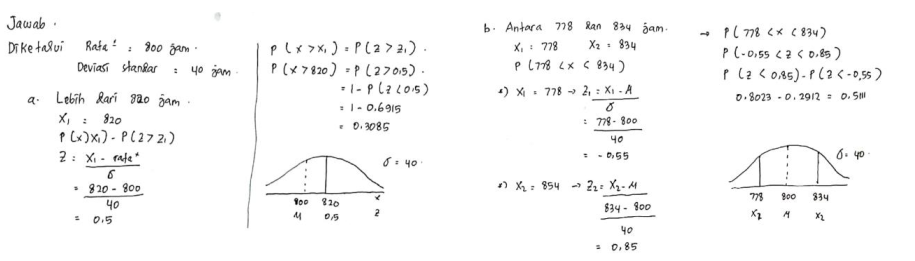 Jawab.
Diketahui Rata² : 800 jam.
Deviasi standar : 40 jam.
a. Lebih dari 820 jam.
X₁ : 820
P(x)x₁) - P(Z>Z₁)
Z : X₁ - rata²
σ
= 820 - 800
40
= 0,5
P(x>x₁) = P(Z>Z₁).
P(x>820) = P(Z>0,5).
= 1 - P(Z<0,5)
= 1 - 0.6915
= 0,3085
σ = 40.
800 820 x
M 0,5 Z
b. Antara 778 dan 834 jam.
X₁ = 778 X₂ = 834
P(778 < x < 834)
*) X₁ = 778 → Z₁ = X₁ - M
σ
= 778 - 800
40
= -0,55
*) X₂ = 854 → Z₂ = X₂ - M
834 - 800
40
= 0,85
→ P(778 < x < 834)
P(-0,55 < Z < 0,85)
P(Z < 0,85) - P(Z < -0,55)
0.8023 - 0.2912 = 0.5111
σ = 40.
778 800 834
X₂ M X₂